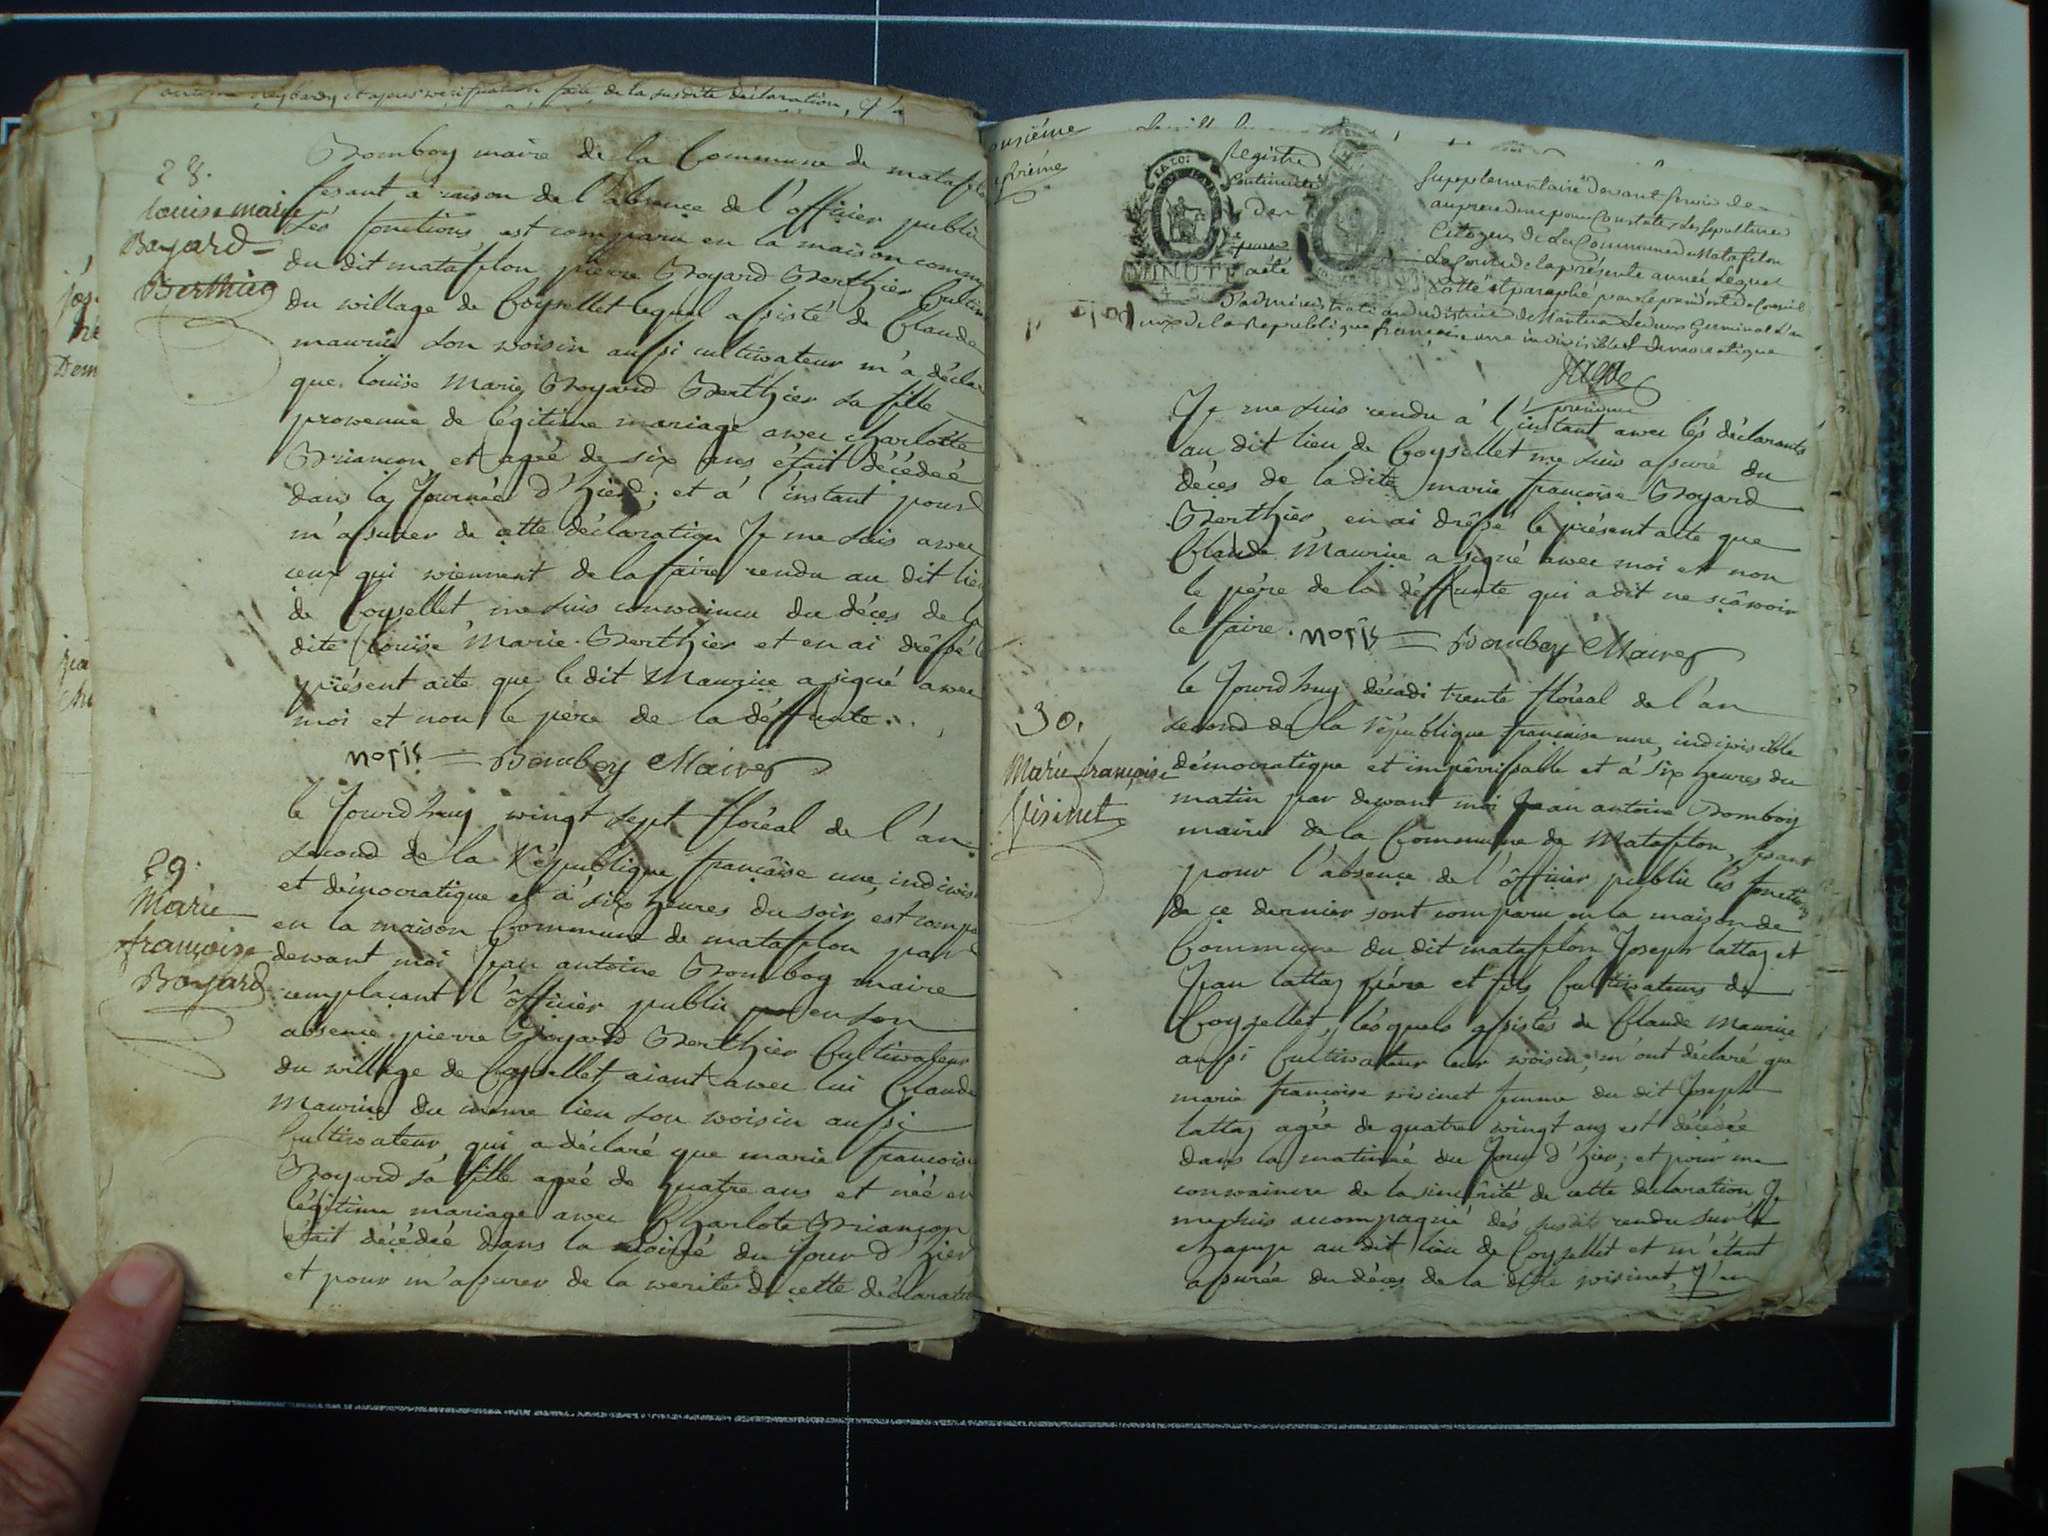 28.
Louise marie
Boyard
Berthier
Bomboy maire de la Commune de mataflon
fesant à raison de l'absence de l'officier public
les fonctions est comparu en la maison commune
du dit mataflon pierre Boyard Berthier Cultivateur
du village de Coysellet lequel assisté de Claude
maurice son voisin aussi cultivateur m'a déclaré
que louise Marie Boyard Berthier sa fille
provenue de légitime mariage avec charlotte
Briançon et ageé de six ans était décédeé
dans la Journée d'hier; et à l'instant pour
m'assurer de cette déclaration Je me suis avec
ceux qui viennent de la faire rendu au dit lieu
de Coysellet me suis convaincu du déces de la
dite Louise Marie Berthier et en ai dréssé le
présent acte que le dit Maurice a signé avec
moi et non le père de la déffunte.
moris = Bomboy Maire
29.
Marie
françoise
Boyard
le Jourdhuy vingt sept floréal de l'an
second de la République française une, indivisible
et démocratique et à six heures du soir, est comparu
en la maison Commune de mataflon par
devant moi Jean antoine Bomboy maire
remplaçant l'officier public en son
absence pierre Boyard Berthier Cultivateur
du village de Coysellet aiant avec lui Claude
Maurice du meme lieu son voisin aussi
Cultivateur, qui a déclaré que marie françoise
Boyard sa fille ageé de quatre ans et néé en
légitime mariage avec Charlote Briançon
était décédeé dans la soiréé du Jour d'hier
et pour m'assurer de la verité de cette déclaration
Registre
Continuité
supplementaire devant servir de
Citoyens de la Commune de Matafelon
Le Cours de la présente année Lequel
a été
MINUTE
coté et paraphé par le président du Conseil
D'administration du district de Nantua le deux Germinal L'an
deux de la Republique française une indivisible et democratique
président
Je me suis rendu à l'instant avec lés déclarants
au dit lieu de Coysellet me suis assuré du
déces de la dite marie françoise Boyard
Berthier, en ai dréssé le présent acte que
Claude Maurice a signé avec moi et non
le père de la déffunte qui a dit ne sçavoir
le faire. moris = Bomboy Maire
30.
Marie françoise
Visinet
le Jourdhuy décadi trente floréal de l'an
second de la République française une, indivisible
démocratique et impérrissable et à six heures du
matin par devant moi Jean antoine Bomboy
maire de la Commune de Mataflon, fesant
pour l'absence de l'officier public les fonctions
de ce dernier sont comparu en la maison de
Commune du dit mataflon Joseph lattaz et
Jean lattaz père et fils Cultivateurs de
Coysellet, lesquels assistés de Claude Maurice
aussi Cultivateur leur voisin, m'ont déclaré que
marie françoise visinet femme du dit Joseph
lattaz agée de quatre vingt ans est décédée
dans la matinée du Jour d'hier; et pour me
convaincre de la sincérité de cette declaration Je
me suis accompagné dés susdits rendu sur le
champ au dit lieu de Coysellet et m'étant
assurée du déces de la dite visinet, J'en